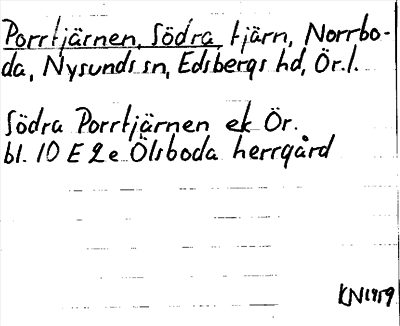 Porrtjärnen, Södra tjärn, Norrbo-
da, Nysunds sn, Edsbergs hd, Ör.l.
Södra Porrtjärnen ek Ör.
bl. 10 E 2 e Ölsboda herrgård
KN1959